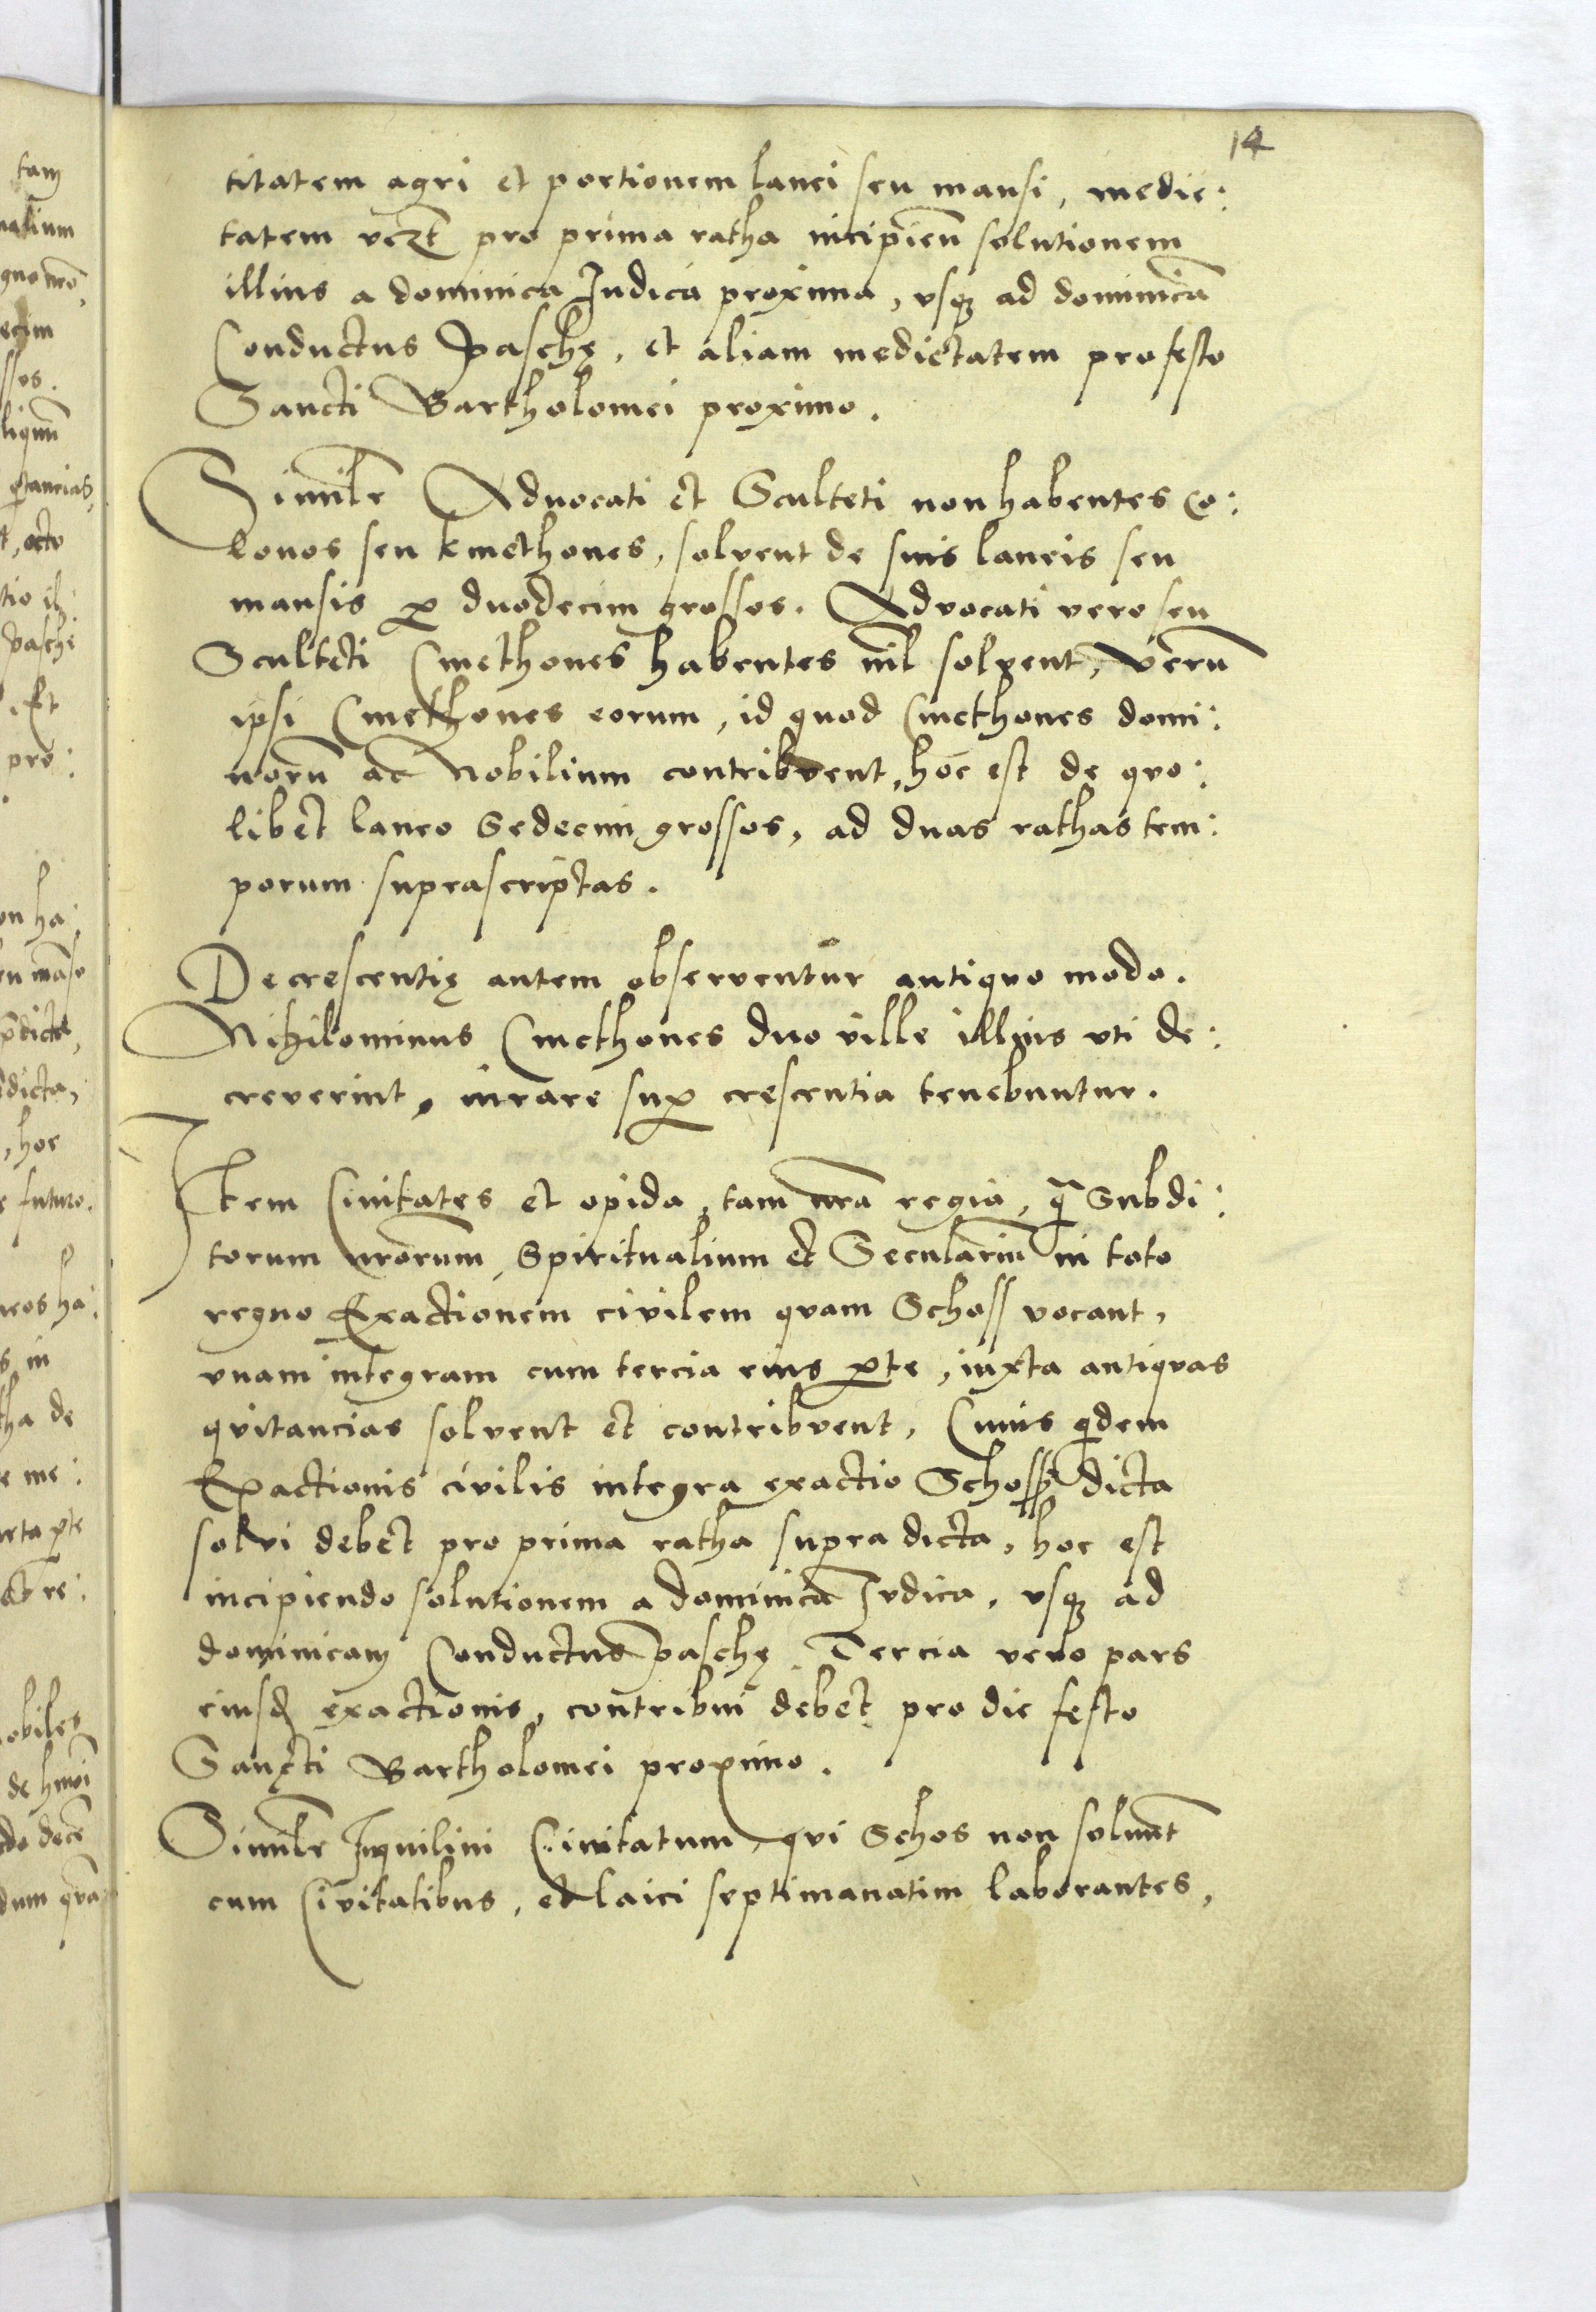 14
titatem agri et portionem lanei seu mansi, medie:
tatem vezt pro prima ratha incipien̄ solutionem
illius a dominica Iudica proxima, vsqꝫ ad dominicā
Conductus Paschę, et aliam medietatem pro festo
Sancti Bartholomei proximo.
Similr̄ Aduocati et Sculteti non habentes co:
lonos seu kmethones, solvent de suis laneis seu
mansis ꝑ duodecim grossos. Advocati vero seu
Sculteti Cmethones habentes nil̄ solvent, verū
ipsi Cmethones eorum, id quod Cmethones domi:
norū ac Nobilium contribvent, hoc est de qvo:
libet laneo Sedecim grossos, ad duas rathas tem:
porum suprascriptas.
Decrescentię autem observentur antiqvo modo.
Nihilominus Cmethones duo ville illius vti de:
creverint, iurare suꝑ crescentia tenebuntur.
Item Ciuitates et opida, tam nr̄a regia, q̄ Subdi:
torum nr̄orum, Spiritualium et Seculariū in toto
regno Exactionem civilem qvam Schoss vocant,
vnam integram cum tercia eius ꝑte, iuxta antiqvas
qvitancias solvent et contribvent, Cuius qdem
Exactionis civilis integra exactio Schoss dicta
solvi debet pro prima ratha supra dicta, hoc est
incipiendo solutionem a dominica Ivdica, vsqꝫ ad
dominicam Conductus paschę Tercia vero pars
eiusd exactionis, contribui debet pro die festo
Sancti Bartholomei proximo.
Similr̄ Inquilini Civitatum, qvi Schos non soluunt
cum Civitatibus, et laici septimanatim laborantes,